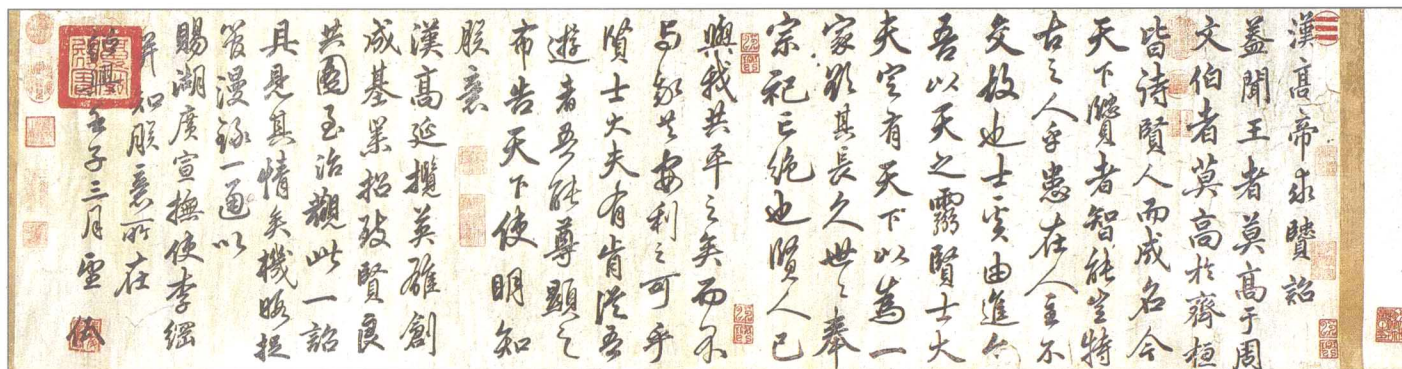 漢高帝求賢詔
蓋聞王者莫高于周
文伯者莫高於齊桓
皆待賢人而成名今
天下賢者智能豈特
古之人乎患在人主不
交故也士奚由進今
吾以天之靈賢士大
夫定有天下以為一
家欲其長久世々奉
宗祀亡絕也賢人已
與我共平之矣而不
与吾共安利之可乎
賢士大夫有肯從吾
遊者吾能尊顯之
布告天下使明知
朕意
漢高延攬英雄創
成基業招致賢良
共圖至治觀此一詔
具見其情矣機暇捉
管漫錄一通以
賜湖廣宣撫使李綱
并知朕意所在
壬子三月